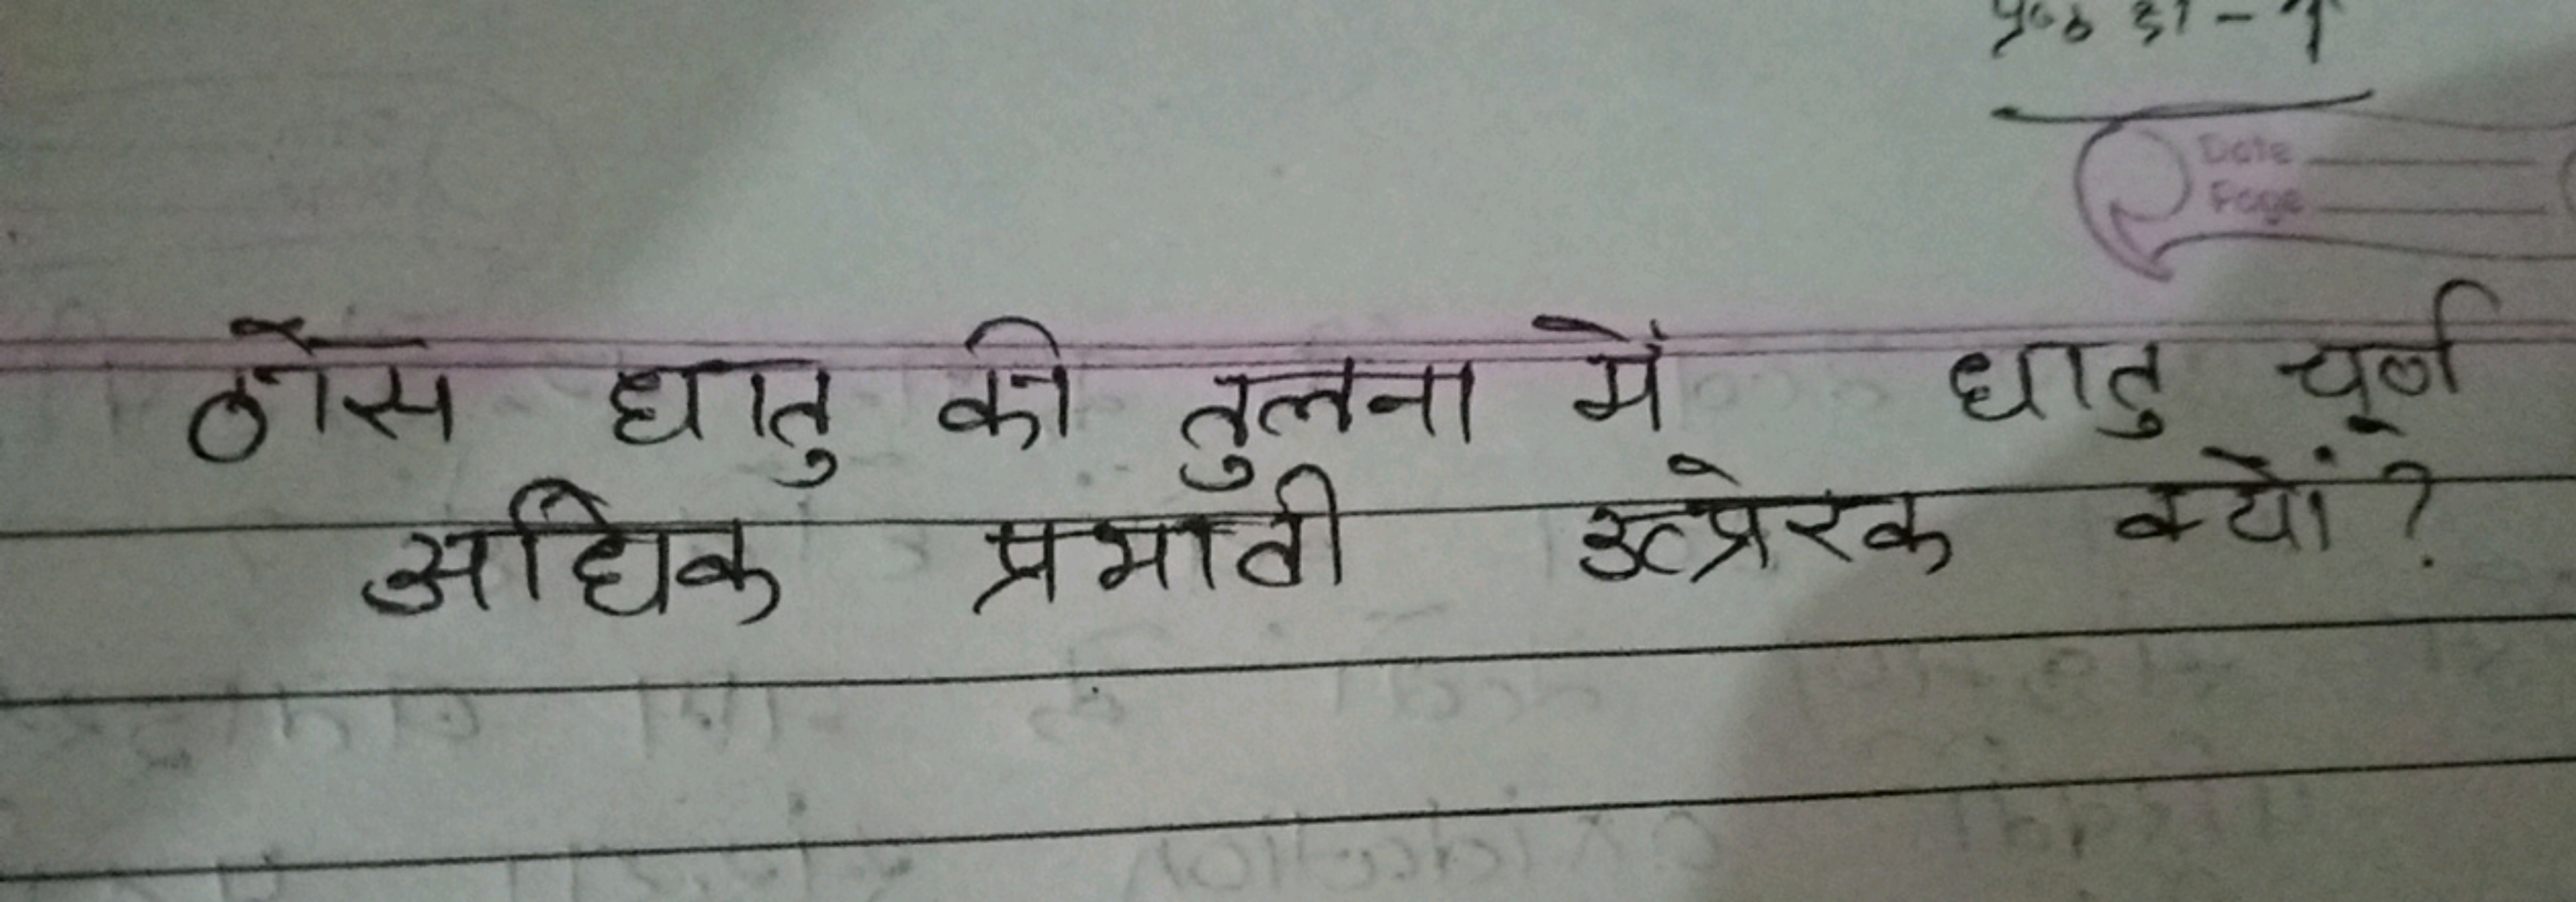 Date
Page
ठोस धातु की तुलना में धातु चूर्ण
अधिक प्रभावी उत्प्रेरक क्यों?